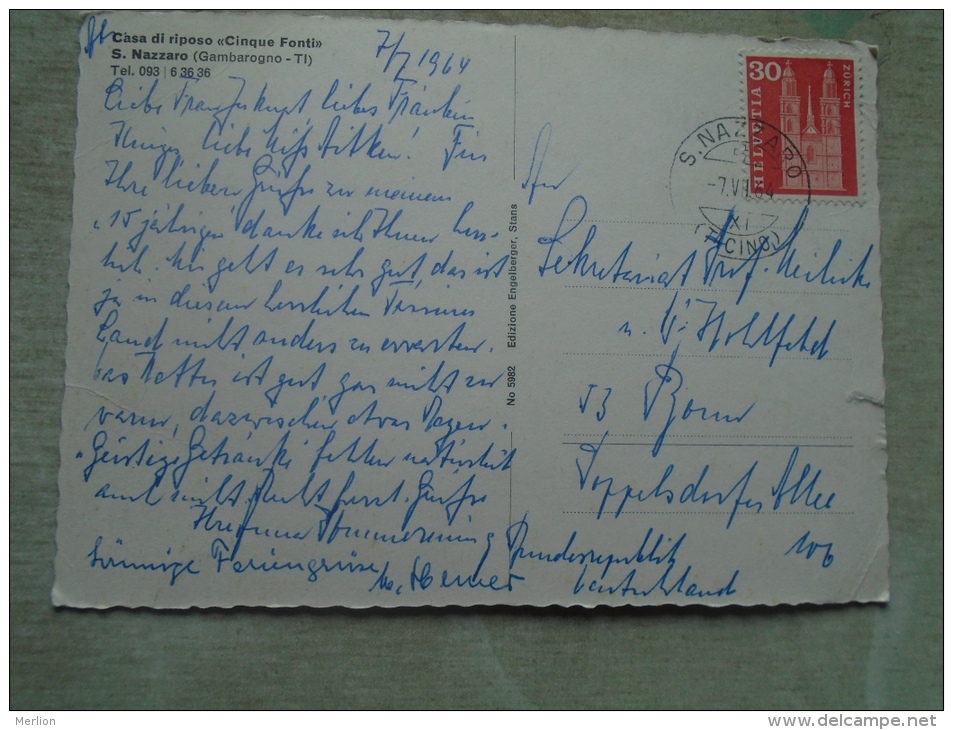 Casa di riposo «Cinque Fonti»
S. Nazzaro (Gambarogno - TI)
Tel. 093 | 6 36 36
7/7 1964
Liebe Frau liebes Fräulein
liebe Miss Aitken! Für
Ihre lieben Grüsse zu meinem
"15 jährigen danke ich Ihnen herz-
lich. Mir geht es sehr gut, das ist
ja in diesem herrlichen Tessiner
Land nicht anders zu erwarten.
Das Wetter ist gut gar nicht zu
warm, dazwischen etwas Regen.
"Geistige Getränke fehlen natürlich
auch nicht. Grüsse
Ihre
sonnige Feriengrüsse
No 5982 Edizione Engelberger, Stans
HELVETIA
30
ZÜRICH
S. NAZZARO
-7.VII.64
(TICINO)
Sekretariat Prof.
u. Holtfeld
53 Bonn
Poppelsdorfer Allee
106
Bundesrepublik
Deutschland
Merlion
www.delcampe.net